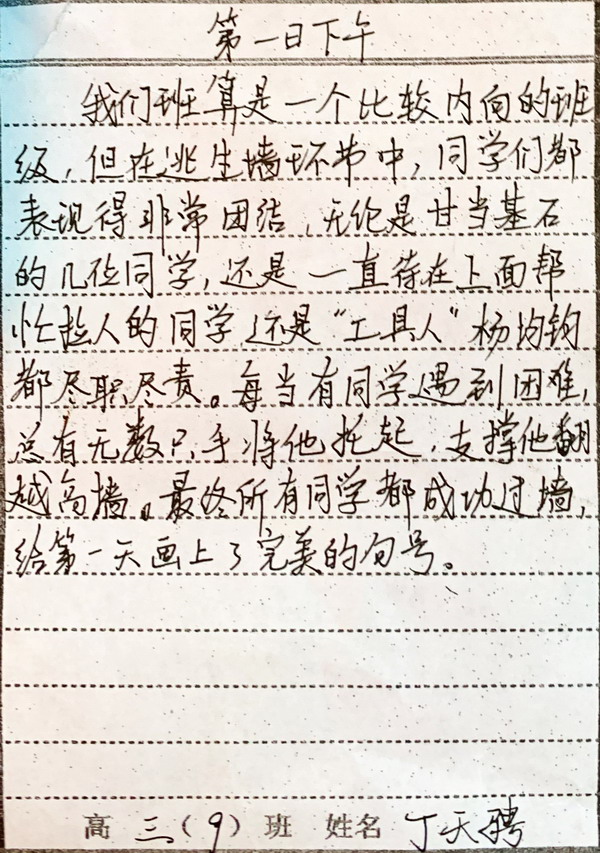 第一日下午
我们班算是一个比较内向的班
级，但在逃生墙环节中，同学们都
表现得非常团结，无论是甘当基石
的几位同学，还是一直待在上面帮
忙拉人的同学还是“工具人”杨均钧
都尽职尽责。每当有同学遇到困难，
总有无数只手将他托起，支撑他翻
越高墙。最终所有同学都成功过墙，
给第一天画上了完美的句号。
高三（9）班 姓名 丁天骋